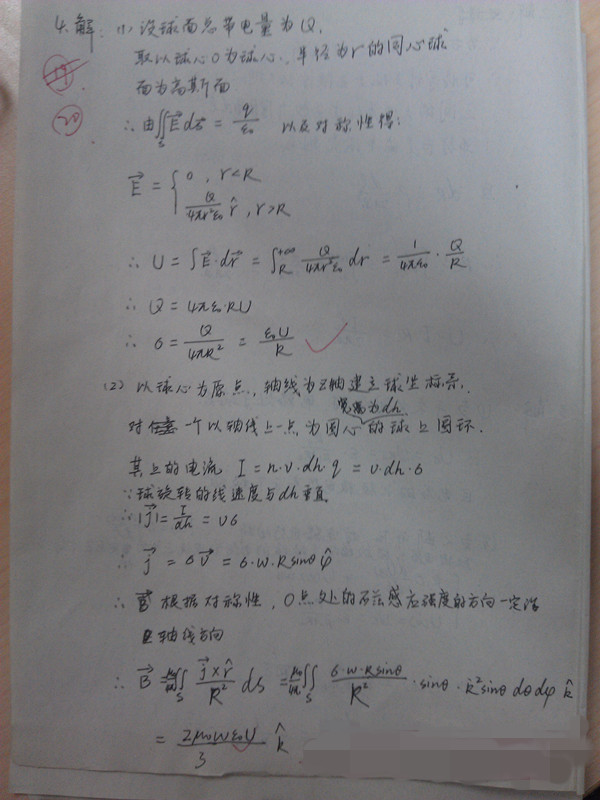 4.解: (1) 设球面总带电量为Q,
取以球心O为球心,半径为r的同心球
面为高斯面
20
∴ 由∯_S E⃗ ds⃗ = q/ε₀ 以及对称性得:
E⃗ = { 0 , r<R
Q/(4πr²ε₀) r̂ , r>R
∴ U = ∫E⃗·dr⃗ = ∫_R^{+∞} Q/(4πr²ε₀) dr = 1/(4πε₀) · Q/R
∴ Q = 4πε₀·RU
∴ σ = Q/(4πR²) = ε₀U/R
(2) 以球心为原点,轴线为z轴建立球坐标系.
宽为dh
对任意一个以轴线上一点为圆心的球上圆环.
其上的电流 I = n·v·dh·q = v·dh·σ
∵球旋转的线速度与dh垂直
∴ |j⃗| = I/dh = vσ
∴ j⃗ = σv⃗ = σ·w·Rsinθ φ̂
∴ 根据对称性, O点处的磁感应强度的方向一定沿
轴线方向
∴ B⃗ = μ₀/4π ∯_S (j⃗×r̂)/R² ds = μ₀/4π ∯_S (σ·w·Rsinθ)/R² · sinθ · R²sinθ dθdφ k̂
= 2μ₀wε₀U/3 k̂